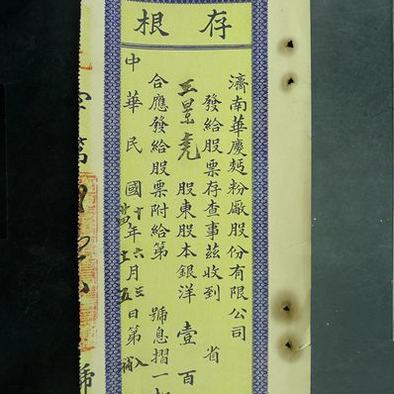 存根
濟南華慶麪粉廠股份有限公司
發給股票存查事茲收到 省
王景 股東股本銀洋壹百
合應發給股票附給第 號息摺一
中華民國十年六月三日第
字第 號